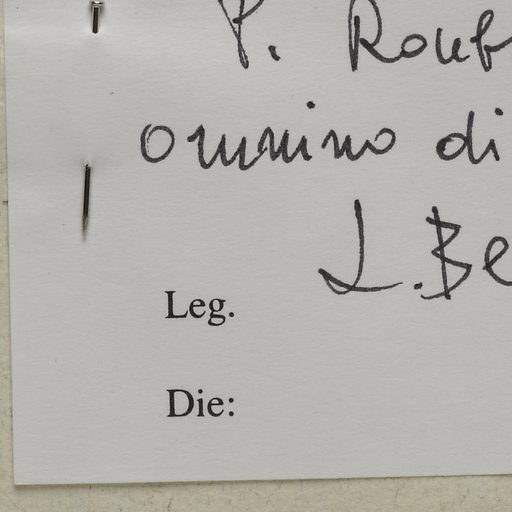 P. Roub
ommino di
L. Be
Leg.
Die: